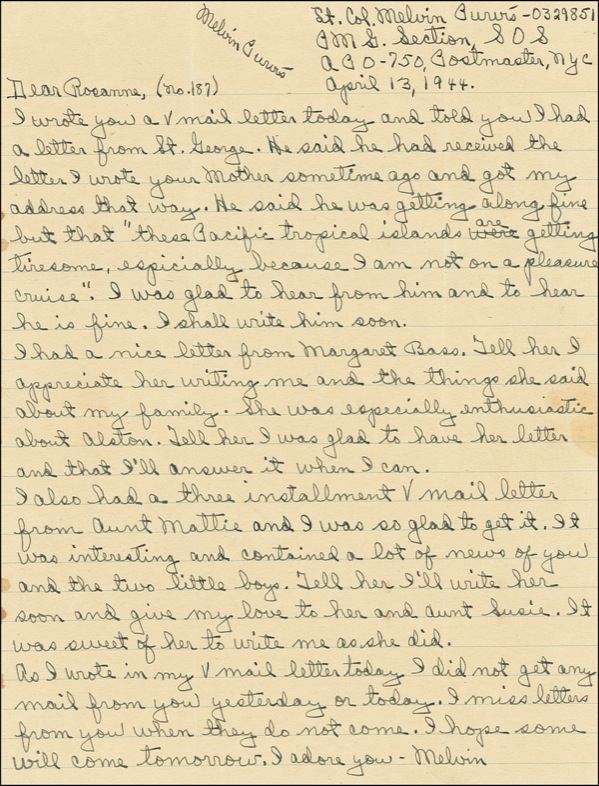 Melvin Purvis
Lt. Col. Melvin Purvis-0329851
P M G. Section, S O S
A P O-750, Postmaster, NYC
April 13, 1944.
Dear Rosanne, (no. 187)
I wrote you a V mail letter today and told you I had
a letter from St. George. He said he had received the
letter I wrote your Mother sometime ago and got my
address that way. He said he was getting along fine
but that "these Pacific tropical islands were are getting
tiresome, espicially because I am not on a pleasure
cruise". I was glad to hear from him and to hear
he is fine. I shall write him soon.
I had a nice letter from Margaret Bass. Tell her I
appreciate her writing me and the things she said
about my family. She was especially enthusiastic
about Alston. Tell her I was glad to have her letter
and that I'll answer it when I can.
I also had a three installment V mail letter
from Aunt Mattie and I was so glad to get it. It
was interesting and contained a lot of news of you
and the two little boys. Tell her I'll write her
soon and give my love to her and Aunt Susie. It
was sweet of her to write me as she did.
As I wrote in my V mail letter today I did not get any
mail from you yesterday or today. I miss letters
from you when they do not come. I hope some
will come tomorrow. I adore you - Melvin